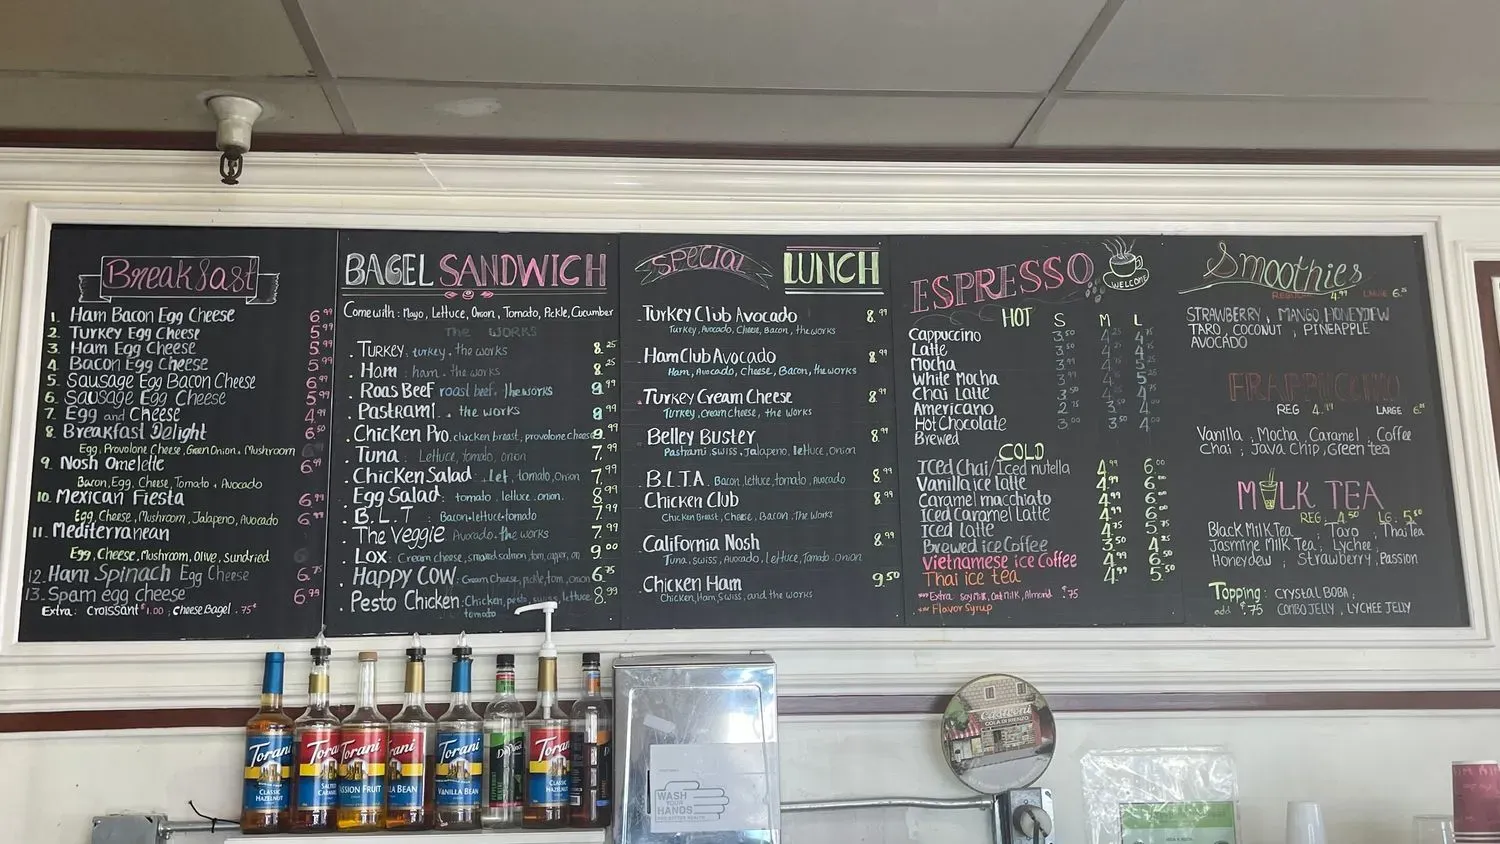 Breakfast
1. Ham Bacon Egg Cheese 6.99
2. Turkey Egg Cheese 5.99
3. Ham Egg Cheese 5.99
4. Bacon Egg Cheese 5.99
5. Sausage Egg Bacon Cheese 6.99
6. Sausage Egg Cheese 5.99
7. Egg and Cheese 4.99
8. Breakfast Delight 6.50
Egg, Provolone Cheese, Green Onion, Mushroom
9. Nosh Omelette 6.99
Bacon, Egg, Cheese, Tomato, Avocado
10. Mexican Fiesta 6.99
Egg, Cheese, Mushroom, Jalapeno, Avocado 6.99
11. Mediterranean
Egg, Cheese, Mushroom, Olive, Sundried
12. Ham Spinach Egg Cheese 6.75
13. Spam egg cheese 6.99
Extra: Croissant $1.00, Cheese Bagel .75¢
BAGEL SANDWICH
Come with: Mayo, Lettuce, Onion, Tomato, Pickle, Cucumber
THE WORKS
. Turkey: turkey. the works 8.25
. Ham: ham. the works 8.25
. Roas Beef roast beef. the works 9.99
. Pastrami. the works 9.99
. Chicken Pro. chicken breast, provolone cheese 9.99
. Tuna: Lettuce, tomato, onion 7.99
. Chicken Salad: Let, tomato, onion 7.99
. Egg Salad: tomato, lettuce, onion. 8.99
. B.L.T: Bacon lettuce tomato 7.99
. The Veggie Avocado, the works 7.99
. Lox: Cream cheese, smoked salmon, tom, caper, on 9.00
. Happy Cow: Cream Cheese, pickle, tom, onion 6.75
. Pesto Chicken: Chicken, pesto, swiss, lettuce 8.99
tomato
SPECIAL LUNCH
. Turkey Club Avocado 8.99
Turkey, Avocado, Cheese, Bacon, the works
. Ham Club Avocado 8.99
Ham, Avocado, Cheese, Bacon, the works
. Turkey Cream Cheese 8.99
Turkey, Cream Cheese, the works
. Belley Buster 8.99
Pastrami, Swiss, Jalapeno, lettuce, Onion
. B.L.T.A. Bacon, lettuce, tomato, Avocado 8.99
. Chicken Club 8.99
Chicken Breast, Cheese, Bacon. The Works
. California Nosh 8.99
Tuna, swiss, Avocado, Lettuce, Tomato, Onion
. Chicken Ham 9.50
Chicken, Ham, Swiss, and the works
ESPRESSO
WELCOME
HOT S M L
Cappuccino 3.50 4.25 4.75
Latte 3.50
Mocha 3.99 5.25
White Mocha 3.99 5.25
Chai Latte
Americano 2.75
Hot Chocolate
Brewed
COLD
Iced Chai/Iced nutella 4.99 6.00
Vanilla ice Latte 4.99 6.00
Caramel macchiato 4.99 6.00
Iced Caramel Latte 4.99 6.00
Iced Latte 4.75 5.75
Brewed ice Coffee 3.50 4.25
Vietnamese ice Coffee 4.99 6.00
Thai ice tea 4.99 5.50
*** Extra Soy Milk, Oat Milk, Almond $.75
** Flavor Syrup
Smoothies
REGULAR 4.99 LARGE 6.25
STRAWBERRY, MANGO, HONEYDEW
TARO, COCONUT, PINEAPPLE
AVOCADO
FRAPPUCCINO
REG 4.99 LARGE
Vanilla, Mocha, Caramel, Coffee
Chai, Java Chip, Green tea
MILK TEA
REG. 4.50 LG. 5.50
Black Milk Tea, Taro, Thai Tea
Jasmine Milk Tea, Lychee
Honeydew, Strawberry, Passion
Topping: Crystal BOBA,
add $.75 COMBO JELLY, LYCHEE JELLY
Torani
CLASSIC HAZELNUT
Torani
SALTED CARAMEL
Torani
PASSION FRUIT
Torani
BEAN
Torani
VANILLA BEAN
DaVinci
Torani
CLASSIC HAZELNUT
WASH
YOUR
HANDS
COLA DI RIENZO